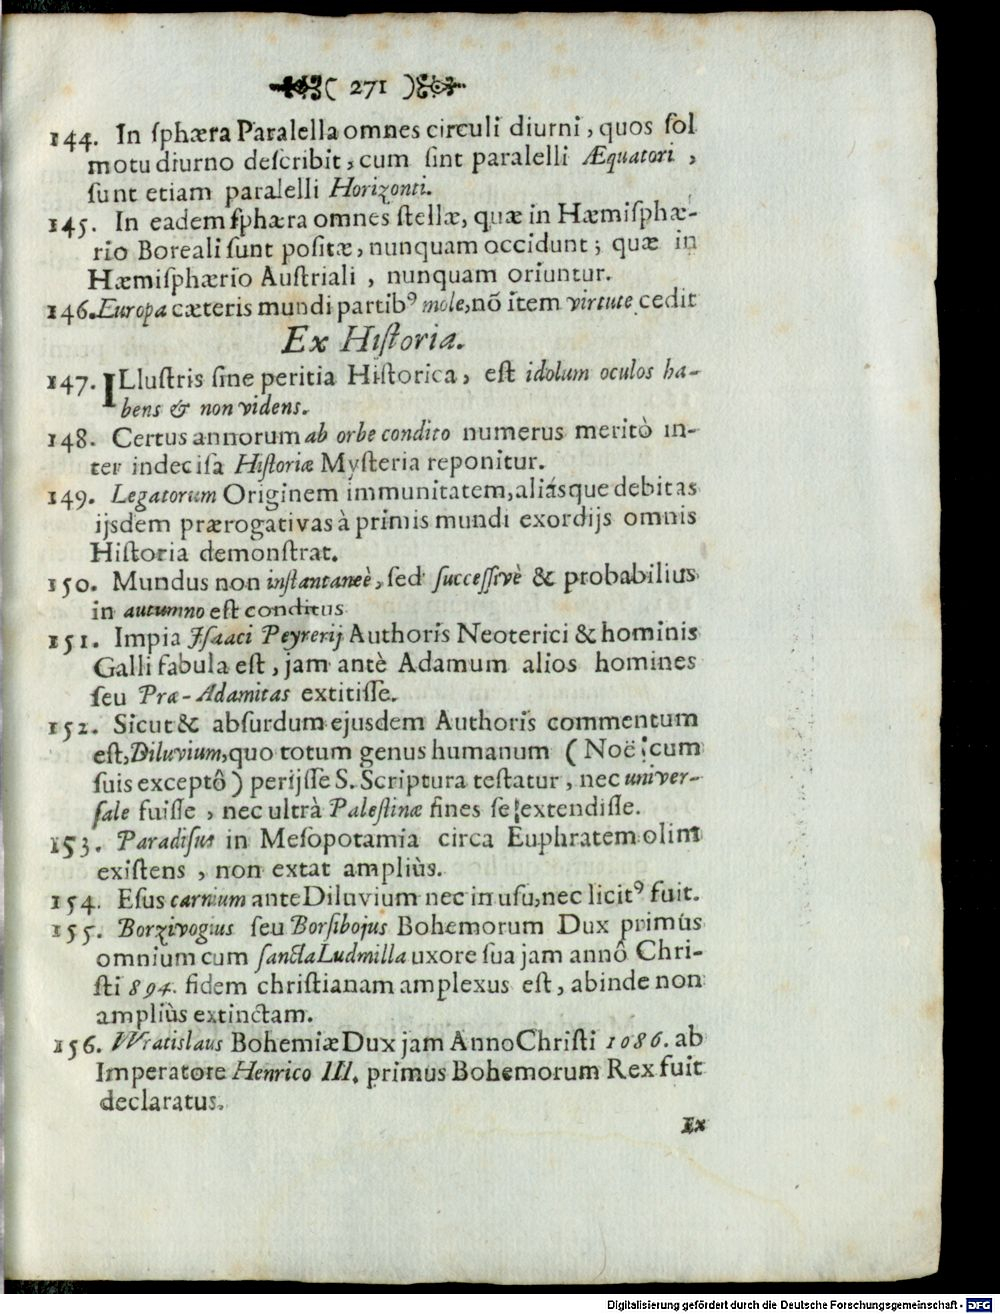 ( 271 )
144. In ſphæra Paralella omnes circuli diurni, quos ſol
motu diurno deſcribit, cum ſint paralelli Æquatori,
ſunt etiam paralelli Horizonti.
145. In eadem ſphæra omnes ſtellæ, quæ in Hæmiſphæ-
rio Boreali ſunt poſitæ, nunquam occidunt; quæ in
Hæmiſphærio Auſtriali, nunquam oriuntur.
146. Europa cæteris mundi partibꝰ mole, nō item virtute cedit
Ex Hiſtoria.
147. ILluſtris ſine peritia Hiſtorica, eſt idolum oculos ha-
bens & non videns.
148. Certus annorum ab orbe condito numerus meritò in-
ter indeciſa Hiſtoriæ Myſteria reponitur.
149. Legatorum Originem immunitatem, aliásque debitas
ijsdem prærogativas à primis mundi exordijs omnis
Hiſtoria demonſtrat.
150. Mundus non inſtantaneè, ſed ſucceſſivè & probabilius
in autumno eſt conditus
151. Impia Iſaaci Peyrerij Authoris Neoterici & hominis
Galli fabula eſt, jam antè Adamum alios homines
ſeu Præ-Adamitas extitiſſe.
152. Sicut & abſurdum ejusdem Authoris commentum
eſt, Diluvium, quo totum genus humanum (Noë cum
ſuis exceptô) perijſſe S. Scriptura teſtatur, nec univer-
ſale fuiſſe, nec ultrà Paleſtinæ fines ſe extendiſſe.
153. Paradiſus in Meſopotamia circa Euphratem olim
exiſtens, non extat ampliùs.
154. Eſus carnium ante Diluvium nec in uſu, nec licitꝰ fuit.
155. Borzivogius ſeu Borſibojus Bohemorum Dux primus
omnium cum ſancta Ludmilla uxore ſua jam annô Chri-
ſti 894. fidem chriſtianam amplexus eſt, abinde non
ampliùs extinctam.
156. Wratislaus Bohemiæ Dux jam Anno Chriſti 1086. ab
Imperatore Henrico III. primus Bohemorum Rex fuit
declaratus.
Ex
Digitalisierung gefördert durch die Deutsche Forschungsgemeinschaft - DFG